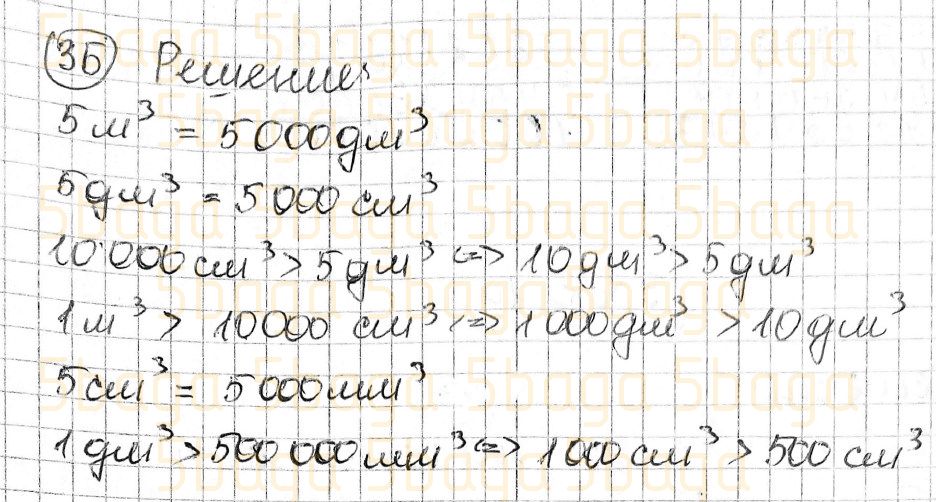 3Б Решение:
5 м³ = 5000 дм³
5 дм³ = 5000 см³
10000 см³ > 5 дм³ <=> 10 дм³ > 5 дм³
1 м³ > 10000 см³ <=> 1000 дм³ > 10 дм³
5 см³ = 5000 мм³
1 дм³ > 500 000 мм³ <=> 1000 см³ > 500 см³
5baga 5baga 5baga 5baga